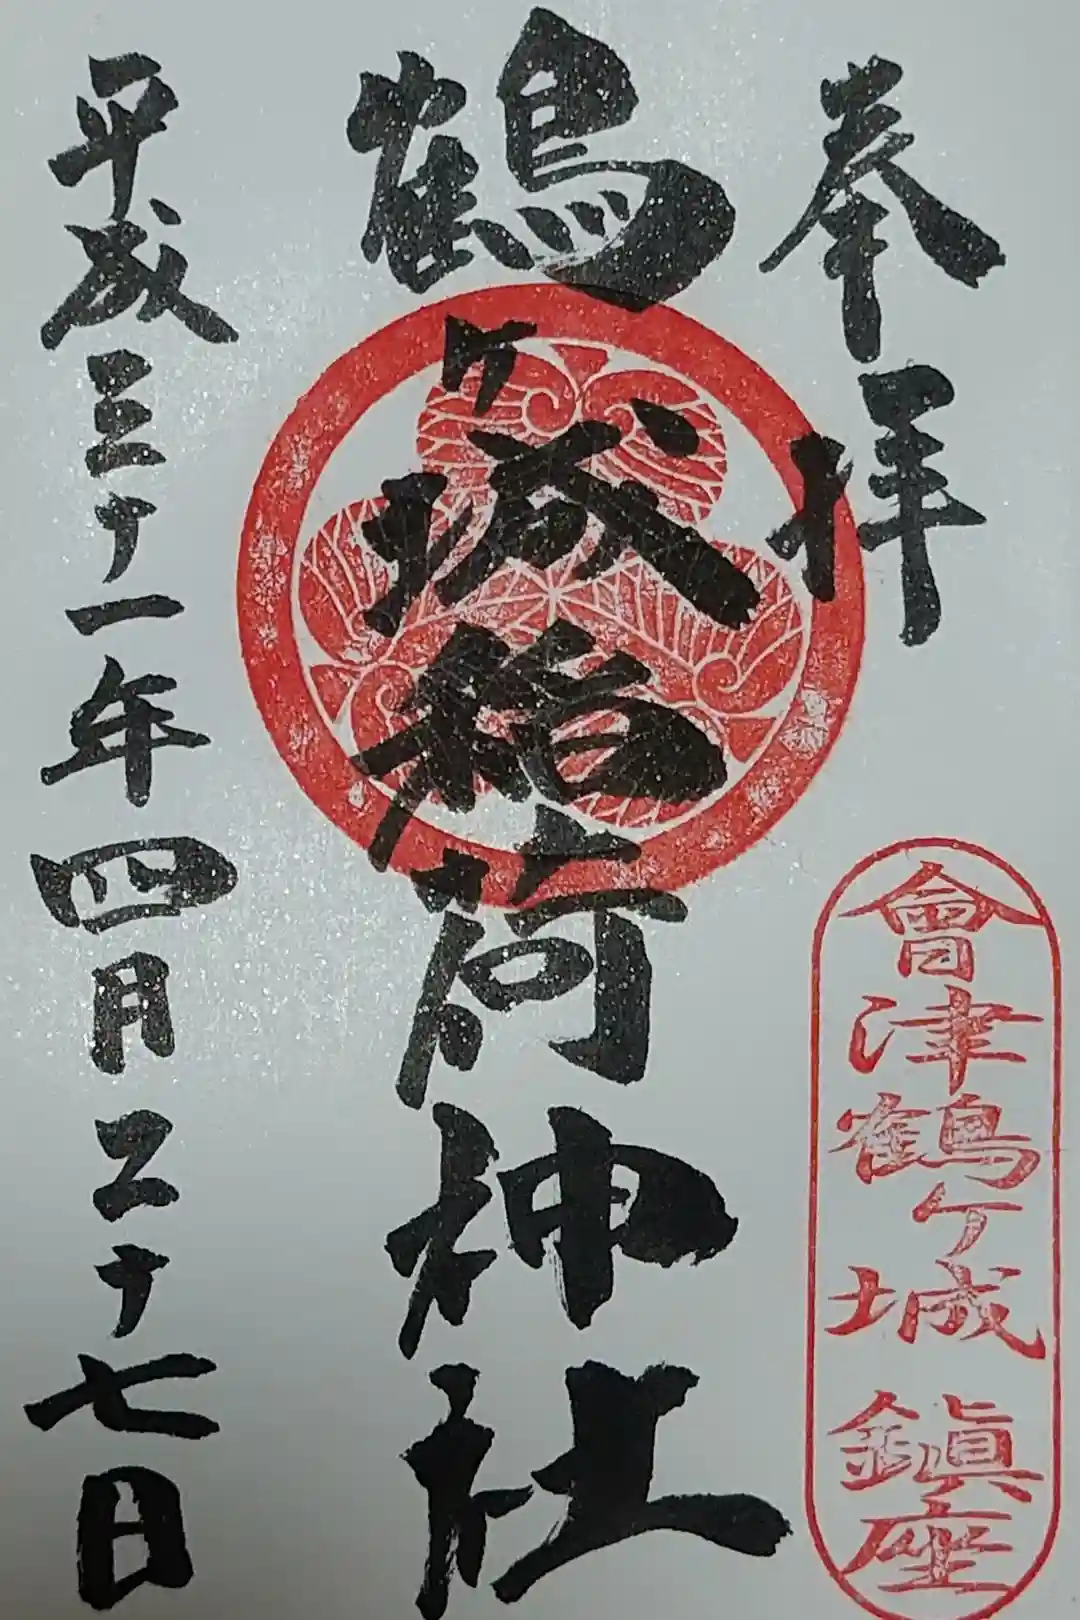 奉拝
會津鶴ケ城鎮座
鶴ケ城稲荷神社
平成三十一年四月二十七日